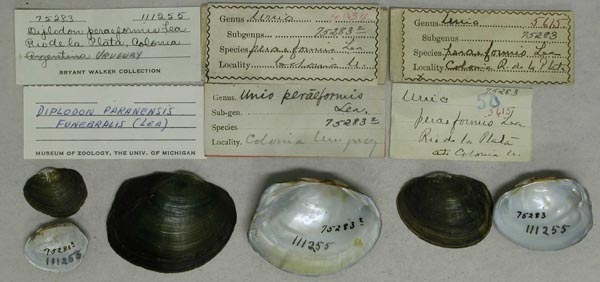 75283 111255
Diplodon peraeformis Lea
Rio de la Plata, Colonia
Argentina Uruguay
BRYANT WALKER COLLECTION
Genus Unio
Subgenus 75283²
Species peraeformis Lea
Locality Colonia U.
Genus Unio 5615
Subgenus 75283
Species peraeformis Lea
Locality Colonia R. de la Plata
DIPLODON PARANENSIS
FUNEBRALIS (LEA)
MUSEUM OF ZOOLOGY, THE UNIV. OF MICHIGAN
Genus. Unio peraeformis
Sub-gen. Lea.
Species 75283²
Locality. Colonia Uruguay
75283
Unio 50
5615
peraeformis Lea
Rio de la Plata
at Colonia U.
75283²
111255
75283²
111255
75283
111255